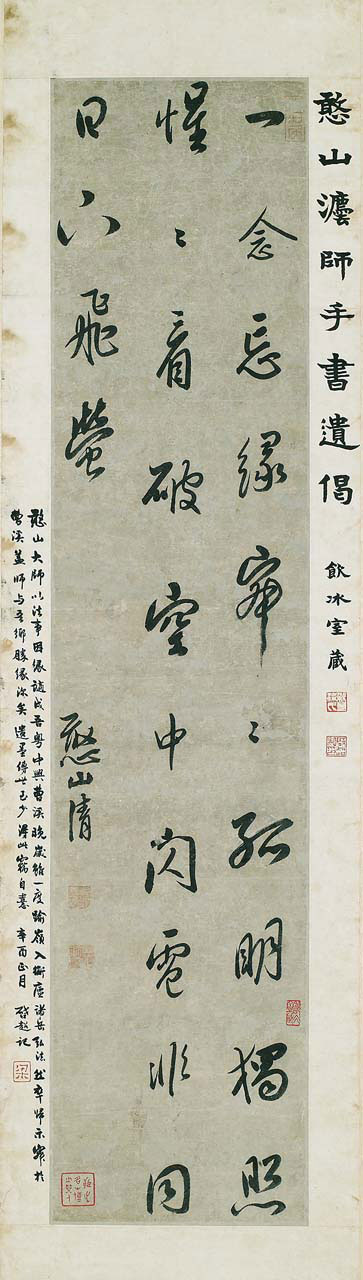 憨山灋師手書遺偈 飲冰室藏
一念忘緣寂〻孤明獨照
惺〻看破空中閃電非同
日下飛螢
憨山清
憨山大師以法事因緣謫戍吾粵中興曹溪晚歲雖一度踰嶺入衡廬諸岳弘法然卒歸示寂於
曹溪蓋師與吾鄉勝緣深矣遺墨傳世已少得此竊自憙 辛酉正月 啓超記
梁